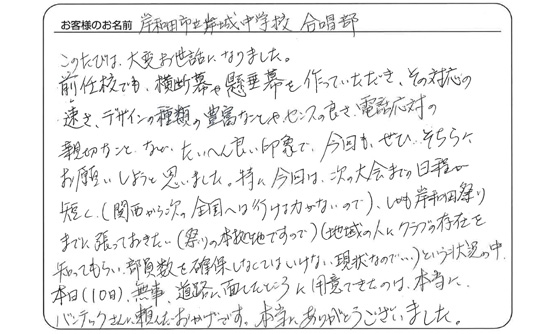 お客様のお名前 岸和田市立岸城中学校 合唱部
このたびは、大変お世話になりました。
前任校でも、横断幕や懸垂幕を作っていただき、その対応の
速さ、デザインの種類の豊富なことや、センスの良さ、電話応対の
親切なこと、なか、たいへん良い印象で、今回も、ぜひ…そちらに
お願いしようと思いました。特に今回は、次の大会までの日程が
短く、(関西から次の全国へは行ける力がないので)、しかも岸和田祭り
までに張っておきたい(祭りの本拠地ですので)(地域の人にクラブの存在を
知ってもらい、部員数を確保しなくてはいけない現状なので…)という状況の中、
本日(10日)、無事、道路に面したところに用意できたのは、本当に
バンテックさんに頼んだおかげです。本当にありがとうございました。